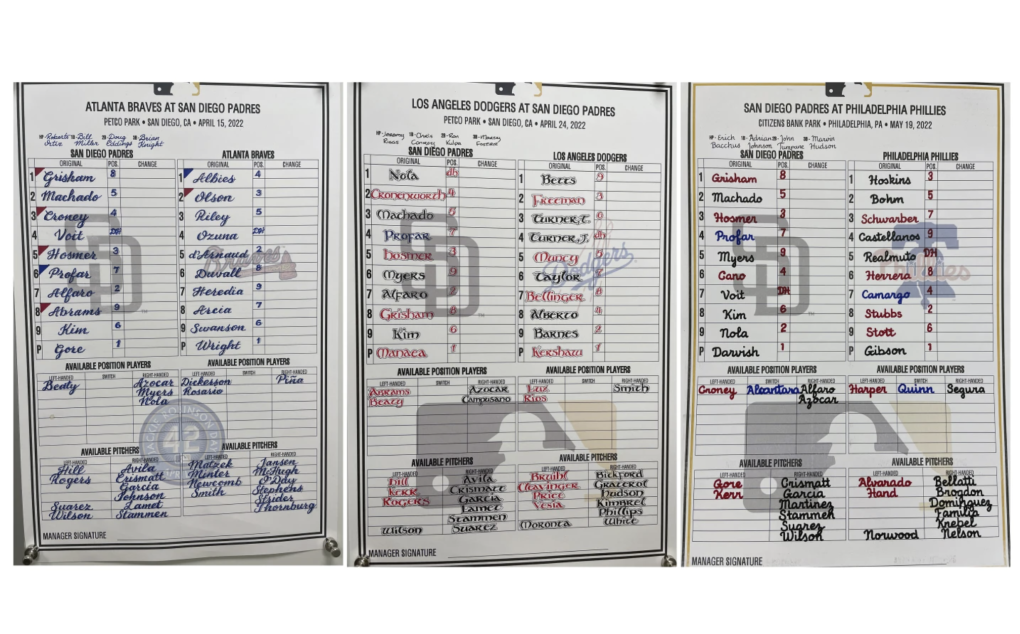 ATLANTA BRAVES AT SAN DIEGO PADRES
PETCO PARK • SAN DIEGO, CA • APRIL 15, 2022
Roberto Ortiz Bill Miller Doug Eddings Brian Knight
SAN DIEGO PADRES ATLANTA BRAVES
ORIGINAL POS. CHANGE ORIGINAL POS. CHANGE
1 Grisham 8 1 Albies 4
2 Machado 5 2 Olson 3
3 Croney 4 3 Riley 5
4 Voit DH 4 Ozuna DH
5 Hosmer 3 5 d'Arnaud 2
6 Profar 7 6 Duvall 8
7 Alfaro 2 7 Heredia 9
8 Abrams 9 8 Arcia 7
9 Kim 6 9 Swanson 6
P Gore 1 P Wright 1
AVAILABLE POSITION PLAYERS AVAILABLE POSITION PLAYERS
LEFT-HANDED SWITCH RIGHT-HANDED LEFT-HANDED SWITCH RIGHT-HANDED
Beaty Azocar Dickerson Piña
Myers Rosario
Nola
42
AVAILABLE PITCHERS AVAILABLE PITCHERS
LEFT-HANDED RIGHT-HANDED LEFT-HANDED RIGHT-HANDED
Hill Avila Matzek Jansen
Rogers Crismatt Minter McHugh
Garcia Newcomb O'Day
Johnson Smith Stephens
Suarez Lamet Strider
Wilson Stammen Thornburg
MANAGER SIGNATURE
LOS ANGELES DODGERS AT SAN DIEGO PADRES
PETCO PARK • SAN DIEGO, CA • APRIL 24, 2022
Chris Conroy Ron Kulpa
SAN DIEGO PADRES LOS ANGELES DODGERS
ORIGINAL POS. CHANGE ORIGINAL POS. CHANGE
1 Nola dh 1 Betts 9
2 Cronenworth 4 2 Freeman 3
3 Machado 5 3 Turner,T. 6
4 Profar 7 4 Turner,J. dh
5 Hosmer 3 5 Muncy 5
6 Myers 9 6 Taylor
7 Alfaro 2 7 Bellinger 8
8 Grisham 8 8 Alberto 4
9 Kim 6 9 Barnes 2
P Manaea 1 P Kershaw 1
Dodgers
AVAILABLE POSITION PLAYERS AVAILABLE POSITION PLAYERS
LEFT-HANDED SWITCH RIGHT-HANDED LEFT-HANDED SWITCH RIGHT-HANDED
Abrams Azocar Lux Smith
Beaty Campusano Rios
AVAILABLE PITCHERS AVAILABLE PITCHERS
LEFT-HANDED RIGHT-HANDED LEFT-HANDED RIGHT-HANDED
Hill Avila Bruihl Bickford
Kerr Crismatt Cleavinger Graterol
Rogers Garcia Price Hudson
Lamet Vesia Kimbrel
Stammen Phillips
Wilson Suarez Moronta White
MANAGER SIGNATURE
SAN DIEGO PADRES AT PHILADELPHIA PHILLIES
CITIZENS BANK PARK • PHILADELPHIA, PA • MAY 19, 2022
Erich Bacchus Adrian Johnson John Tumpane Marvin Hudson
SAN DIEGO PADRES PHILADELPHIA PHILLIES
ORIGINAL POS. CHANGE ORIGINAL POS. CHANGE
1 Grisham 8 1 Hoskins 3
2 Machado 5 2 Bohm 5
3 Hosmer 3 3 Schwarber 7
4 Profar 7 4 Castellanos 9
5 Myers 9 5 Realmuto DH
6 Cano 4 6 Herrera 8
7 Voit DH 7 Camargo 4
8 Kim 6 8 Stubbs 2
9 Nola 2 9 Stott 6
P Darvish 1 P Gibson 1
AVAILABLE POSITION PLAYERS AVAILABLE POSITION PLAYERS
LEFT-HANDED SWITCH RIGHT-HANDED LEFT-HANDED SWITCH RIGHT-HANDED
Croney Alcantara Alfaro Harper Quinn Segura
Azocar
AVAILABLE PITCHERS AVAILABLE PITCHERS
LEFT-HANDED RIGHT-HANDED LEFT-HANDED RIGHT-HANDED
Gore Crismatt Alvarado Bellatti
Kerr Garcia Hand Brogdon
Martinez Dominguez
Stammen Familia
Suarez Knebel
Wilson Norwood Nelson
MANAGER SIGNATURE